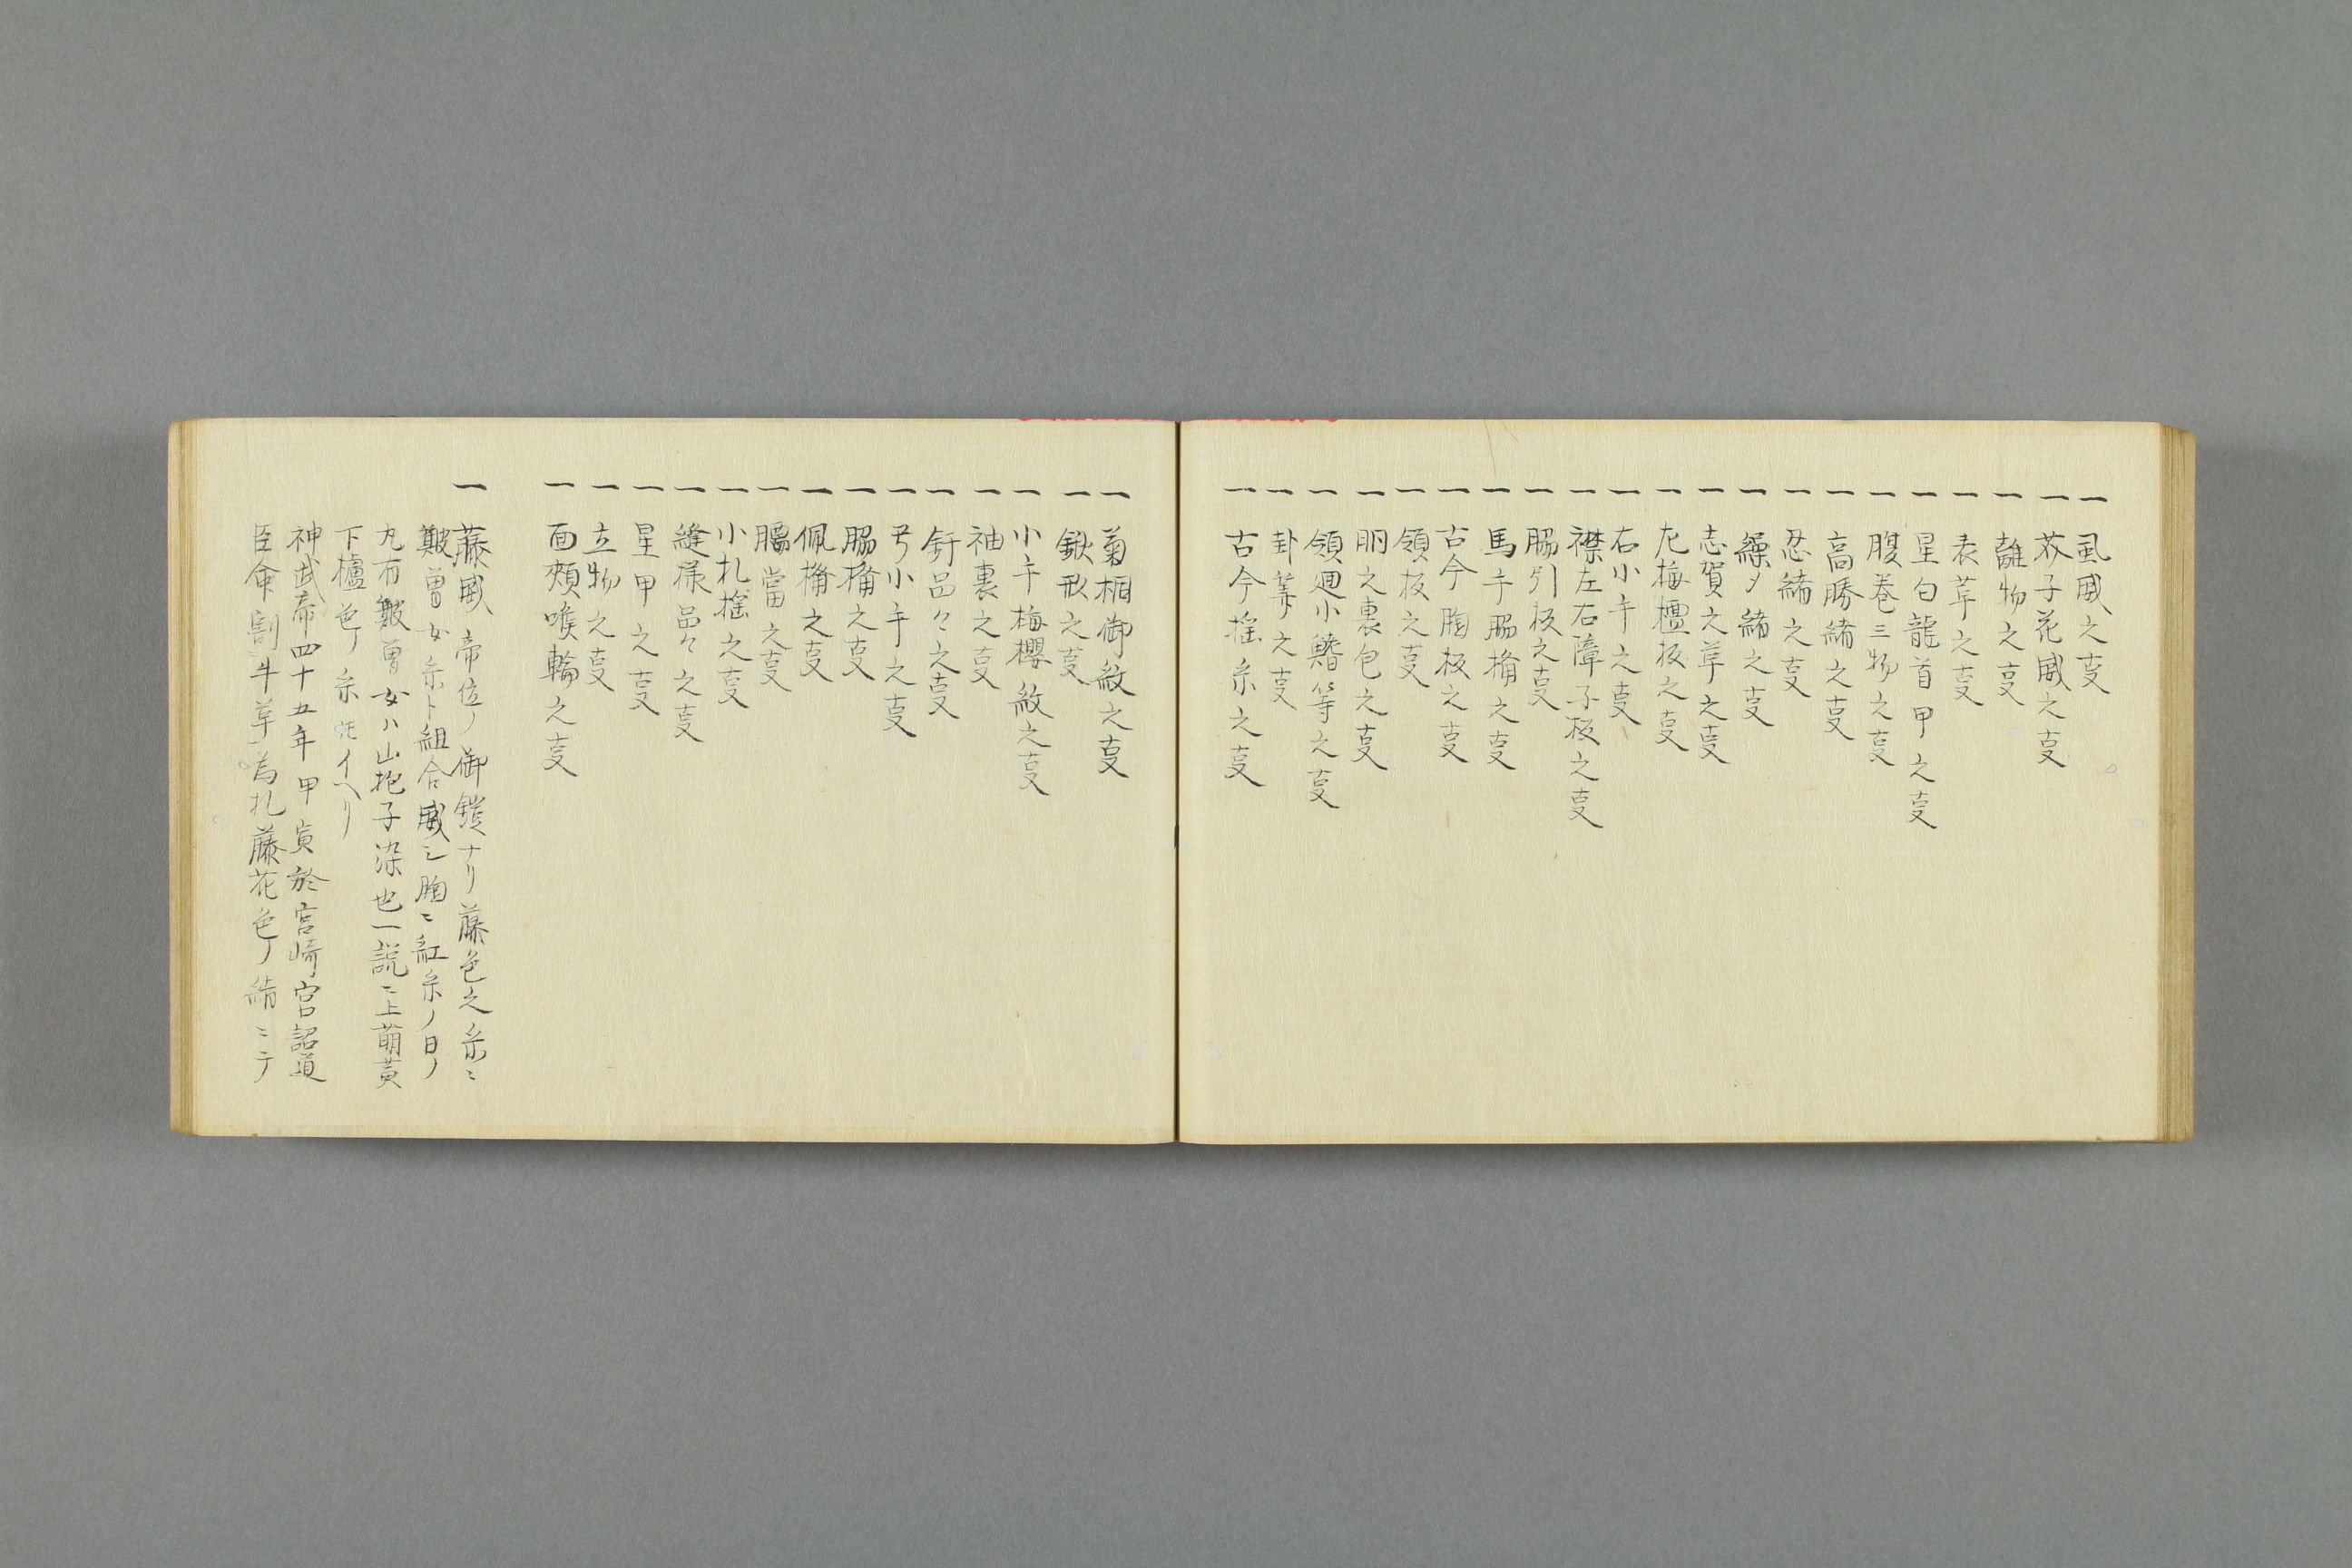 一 虱威之㕝
一 芥子花威之㕝
一 離物之㕝
一 表革之㕝
一 星白龍首甲之㕝
一 腹巻三物之㕝
一 高勝緒之㕝
一 忍緒之㕝
一 繰〆緒之㕝
一 志賀之革之㕝
一 左梅檀板之㕝
一 右小手之㕝
一 襟左右障子板之㕝
一 脇引板之㕝
一 馬手脇楯之㕝
一 古今胸板之㕝
一 領板之㕝
一 胴之裏包之㕝
一 領廻小鰭等之㕝
一 卦算之㕝
一 古今揺糸之㕝
一 菊桐御紋之㕝
一 鍬形之㕝
一 小手梅櫻紋之㕝
一 袖裏之㕝
一 釪品々之㕝
一 弓小手之㕝
一 脇楯之㕝
一 佩楯之㕝
一 臑當之㕝
一 小札揺之㕝
一 縫様品々之㕝
一 星甲之㕝
一 立物之㕝
一 面頬喉輪之㕝
一 藤威 帝位ノ御鎧ナリ藤色之糸ニ
皺曽女糸ト組合威シ胸ニ紅糸ノ日ノ
丸有皺曽女ハ山梔子染也一説ニ上萌黄
下櫨色ノ糸𪜈イヘリ
神武帝四十五年甲寅於宮崎宮詔道
臣命割牛革為札藤花色ノ緒ニテ